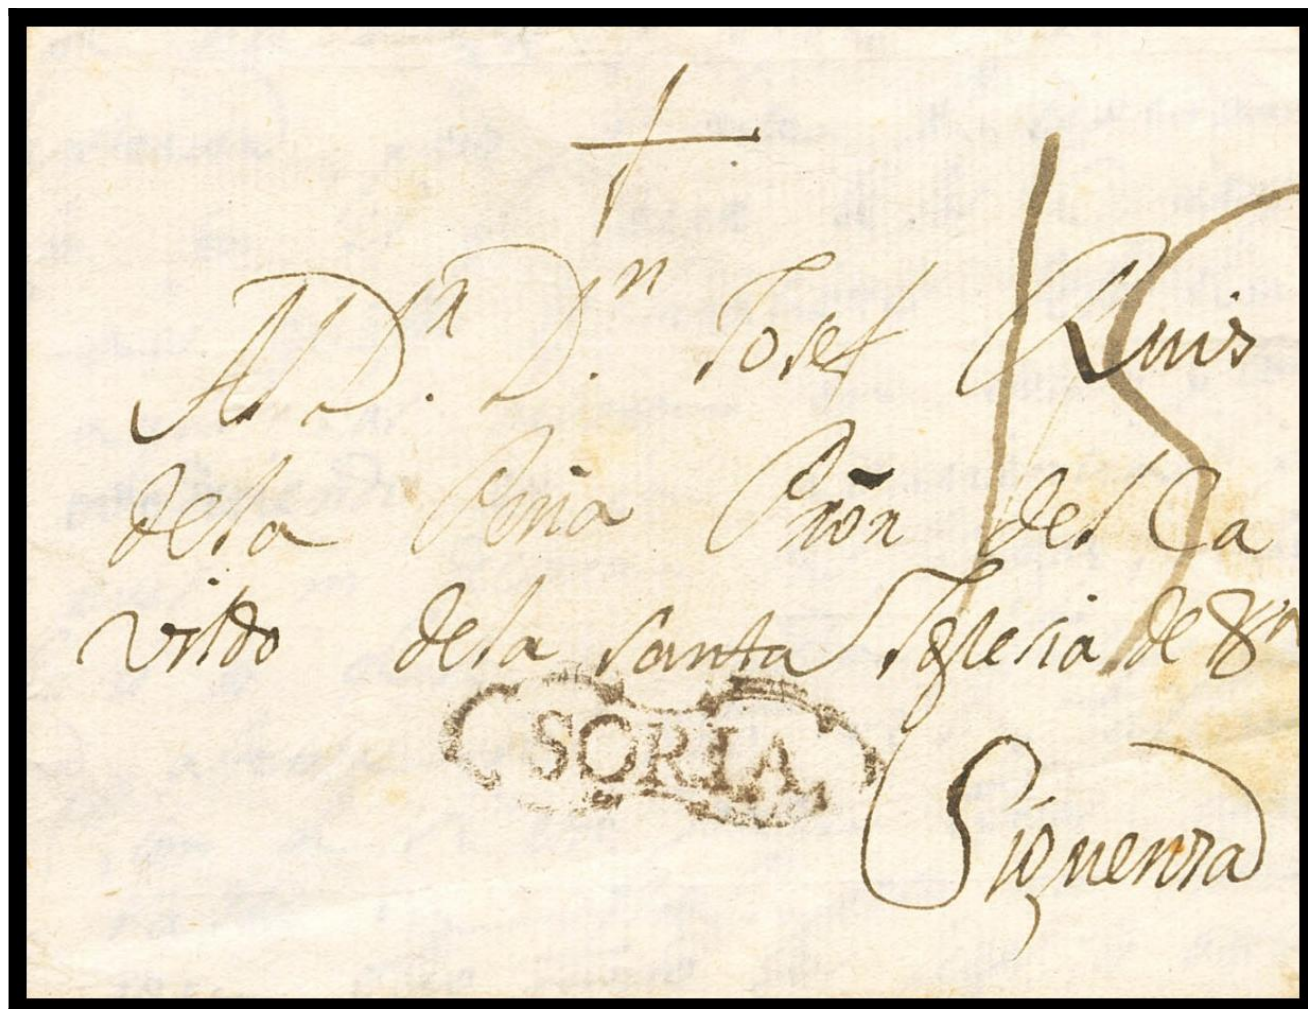 †
Al D.ⁿ D.ⁿ Josef Ruis
dela Peña Pñon del Ca
vildo dela Santa Iglesia de
SORIA
Siguenza
15